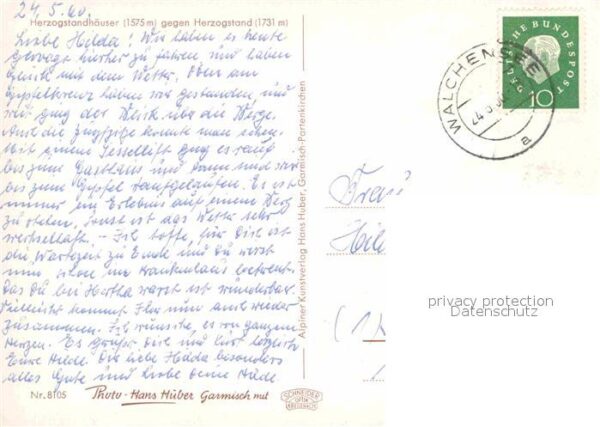 24.5.60.
Herzogstandhäuser (1575 m) gegen Herzogstand (1731 m)
Liebe Hilda! Wir haben es heute
gewagt hierher zu fahren und haben
Glück mit dem Wetter. Oben am
Gipfelkreuz haben wir gestanden, und
ging der Blick über die Berge.
Auch die Zugspitze konnte man sehen.
Mit einem Sessellift ging es rauf
bis zum Gasthaus und dann sind wir
bis zum Gipfel raufgelaufen. Es ist
immer ein Erlebnis auf einem Berg
zu stehen, sonst ist das Wetter sehr
wechselhaft. - Ich hoffe, für Dich ist
die Wartezeit zu Ende und Du wirst
nun schon im Krankenhaus betreut.
Das Du bei Hertha warst ist wunderbar.
Vielleicht kommt Ihr nun auch wieder
zusammen. Ich wünsche, es von ganzem
Herzen. Es grüßt Dich und küßt herzlich
Eure Hilde. Dir liebe Hilda besonders
alles Gute und Liebe Deine Hilde
Nr. 8105
Photo - Hans Huber Garmisch mit
SCHNEIDER
OPTIK
KREUZNACH
Alpiner Kunstverlag Hans Huber, Garmisch-Partenkirchen
DEUTSCHE BUNDESPOST
10
WALCHENSEE
a
Frau
Hil
privacy protection
Datenschutz
(1